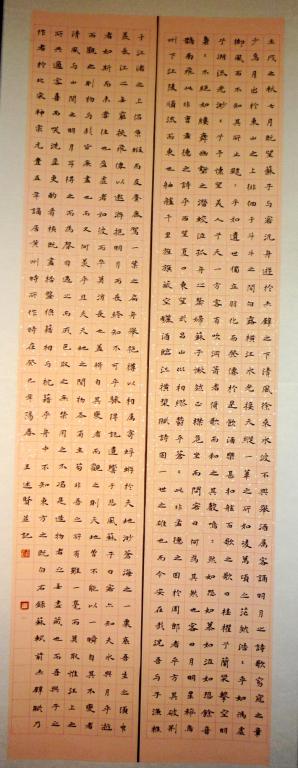 壬戌之秋七月既望蘇子與客泛舟遊於赤壁之下清風徐來水波不興舉酒屬客誦明月之詩歌窈窕之章
少焉月出於東山之上徘徊于斗牛之間白露橫江水光接天縱一葦之所如凌萬頃之茫然浩=乎如馮虛
御風而不知其所止飄=乎如遺世獨立羽化而登僊於是飲酒樂甚扣舷而歌之歌曰桂櫂兮蘭槳擊空明
兮溯流光渺=兮予懷望美人兮天一方客有吹洞簫者倚歌而和之其聲嗚=然如怨如慕如泣如愬餘音
裊=不絕如縷舞幽壑之潛蛟泣孤舟之嫠婦蘇子愀然正襟危坐而問客曰何為其然也客曰月明星稀烏
鵲南飛此非曹孟德之詩乎西望夏口東望武昌山川相繆鬱乎蒼=此非孟德之困於周郎者乎方其破荊
州下江陵順流而東也舳艫千里旌旗蔽空釃酒臨江橫槊賦詩固一世之雄也而今安在哉況吾與子漁樵
于江渚之上侶魚蝦而友麋鹿駕一葉之扁舟舉匏樽以相屬寄蜉蝣於天地渺蒼海之一粟哀吾生之須臾
羨長江之無窮挾飛僊以遨遊抱明月而長終知不可乎驟得託遺響于悲風蘇子曰客亦知夫水與月乎逝
者如斯而未嘗往也盈虛者如彼而卒莫消長也蓋將自其變者而觀之則天地曾不能以一瞬自其不變者
而觀之則物與我皆無盡也而又何羨乎且夫天地之間物各有主苟非吾之所有雖一毫而莫取惟江上之
清風與山間之明月耳得之而為聲目遇之而成色取之無禁用之不竭是造物者之無盡藏也而吾與子之
所共適客喜而笑洗盞更酌肴核既盡杯盤狼籍相與枕藉乎舟中不知東方之既白右錄蘇軾前赤壁賦乃
作者於北宋神宗元豐五年謫居黃州時所作時在癸巳年陽春 王述賢並記